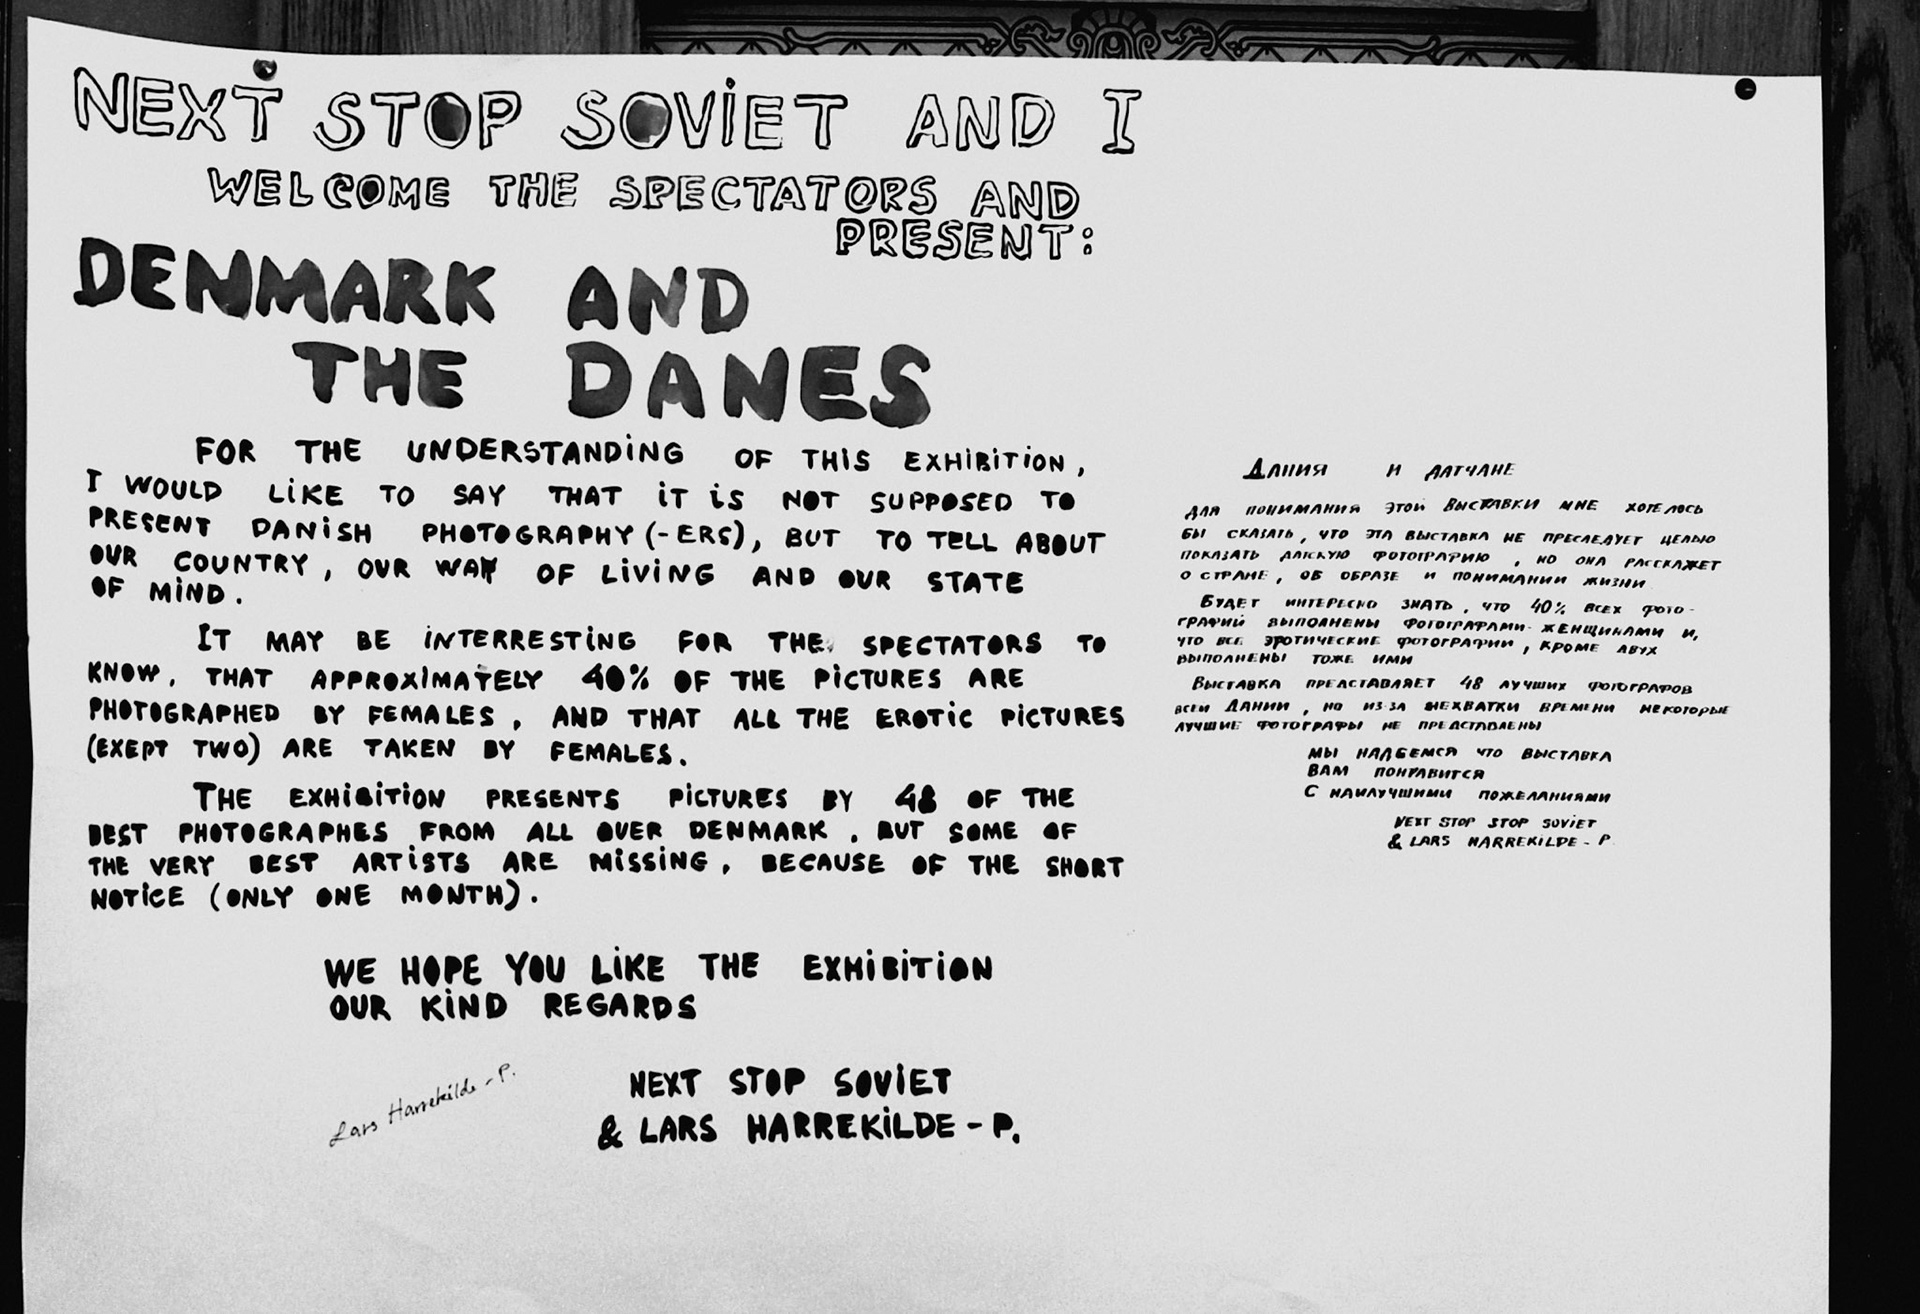 NEXT STOP SOVIET AND I
WELCOME THE SPECTATORS AND
PRESENT:
DENMARK AND
THE DANES
FOR THE UNDERSTANDING OF THIS EXHIBITION,
I WOULD LIKE TO SAY THAT IT IS NOT SUPPOSED TO
PRESENT DANISH PHOTOGRAPHY (-ERS), BUT TO TELL ABOUT
OUR COUNTRY, OUR WAY OF LIVING AND OUR STATE
OF MIND.
IT MAY BE INTERRESTING FOR THE SPECTATORS TO
KNOW, THAT APPROXIMATELY 40% OF THE PICTURES ARE
PHOTOGRAPHED BY FEMALES, AND THAT ALL THE EROTIC PICTURES
(EXEPT TWO) ARE TAKEN BY FEMALES.
THE EXHIBITION PRESENTS PICTURES BY 48 OF THE
BEST PHOTOGRAPHES FROM ALL OVER DENMARK, BUT SOME OF
THE VERY BEST ARTISTS ARE MISSING, BECAUSE OF THE SHORT
NOTICE (ONLY ONE MONTH).
WE HOPE YOU LIKE THE EXHIBITION
OUR KIND REGARDS
NEXT STOP SOVIET
& LARS HARREKILDE-P.
Lars Harrekilde-P.
ДАНИЯ И ДАТЧАНЕ
ДЛЯ ПОНИМАНИЯ ЭТОЙ ВЫСТАВКИ МНЕ ХОТЕЛОСЬ
БЫ СКАЗАТЬ, ЧТО ЭТА ВЫСТАВКА НЕ ПРЕСЛЕДУЕТ ЦЕЛЬЮ
ПОКАЗАТЬ ДАТСКУЮ ФОТОГРАФИЮ, НО ОНА РАССКАЖЕТ
О СТРАНЕ, ОБ ОБРАЗЕ И ПОНИМАНИИ ЖИЗНИ
БУДЕТ ИНТЕРЕСНО ЗНАТЬ, ЧТО 40% ВСЕХ ФОТО-
ГРАФИЙ ВЫПОЛНЕНЫ ФОТОГРАФАМИ-ЖЕНЩИНАМИ И,
ЧТО ВСЕ ЭРОТИЧЕСКИЕ ФОТОГРАФИИ, КРОМЕ ДВУХ
ВЫПОЛНЕНЫ ТОЖЕ ИМИ
ВЫСТАВКА ПРЕДСТАВЛЯЕТ 48 ЛУЧШИХ ФОТОГРАФОВ
ВСЕЙ ДАНИИ, НО ИЗ-ЗА НЕХВАТКИ ВРЕМЕНИ НЕКОТОРЫЕ
ЛУЧШИЕ ФОТОГРАФЫ НЕ ПРЕДСТАВЛЕНЫ
МЫ НАДЕЕМСЯ ЧТО ВЫСТАВКА
ВАМ ПОНРАВИТСЯ
С НАИЛУЧШИМИ ПОЖЕЛАНИЯМИ
NEXT STOP STOP SOVIET
& LARS HARREKILDE-P.